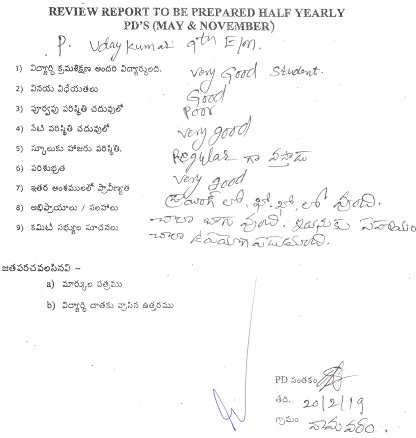 REVIEW REPORT TO BE PREPARED HALF YEARLY
PD'S (MAY & NOVEMBER)
P. Udaykumar 9th E/m.
1) విద్యార్థి క్రమశిక్షణ అందరి విద్యార్థులది. very Good Student.
2) వినయ విధేయతలు Good
3) పూర్వపు పరిస్థితి చదువులో Poor
4) నేటి పరిస్థితి చదువులో very good
5) స్కూలుకు హాజరు పరిస్థితి. Regular గా వస్తాడు
6) పరిశుభ్రత very good
7) ఇతర అంశములలో ప్రావీణ్యత డ్రాయింగ్ లో, ఖో,ఖో, లో వుంది.
8) అభిప్రాయాలు / సలహాలు చాలా బాగ వుంది. సహాయం
9) కమిటీ సభ్యుల సూచనలు చాలా ఉపయోగపడుతుంది.
జతపరచవలసినవి –
a) మార్కుల పత్రము
b) విద్యార్థి దాతకు వ్రాసిన ఉత్తరము
PD సంతకం
తేది. 20/2/19
గ్రామం